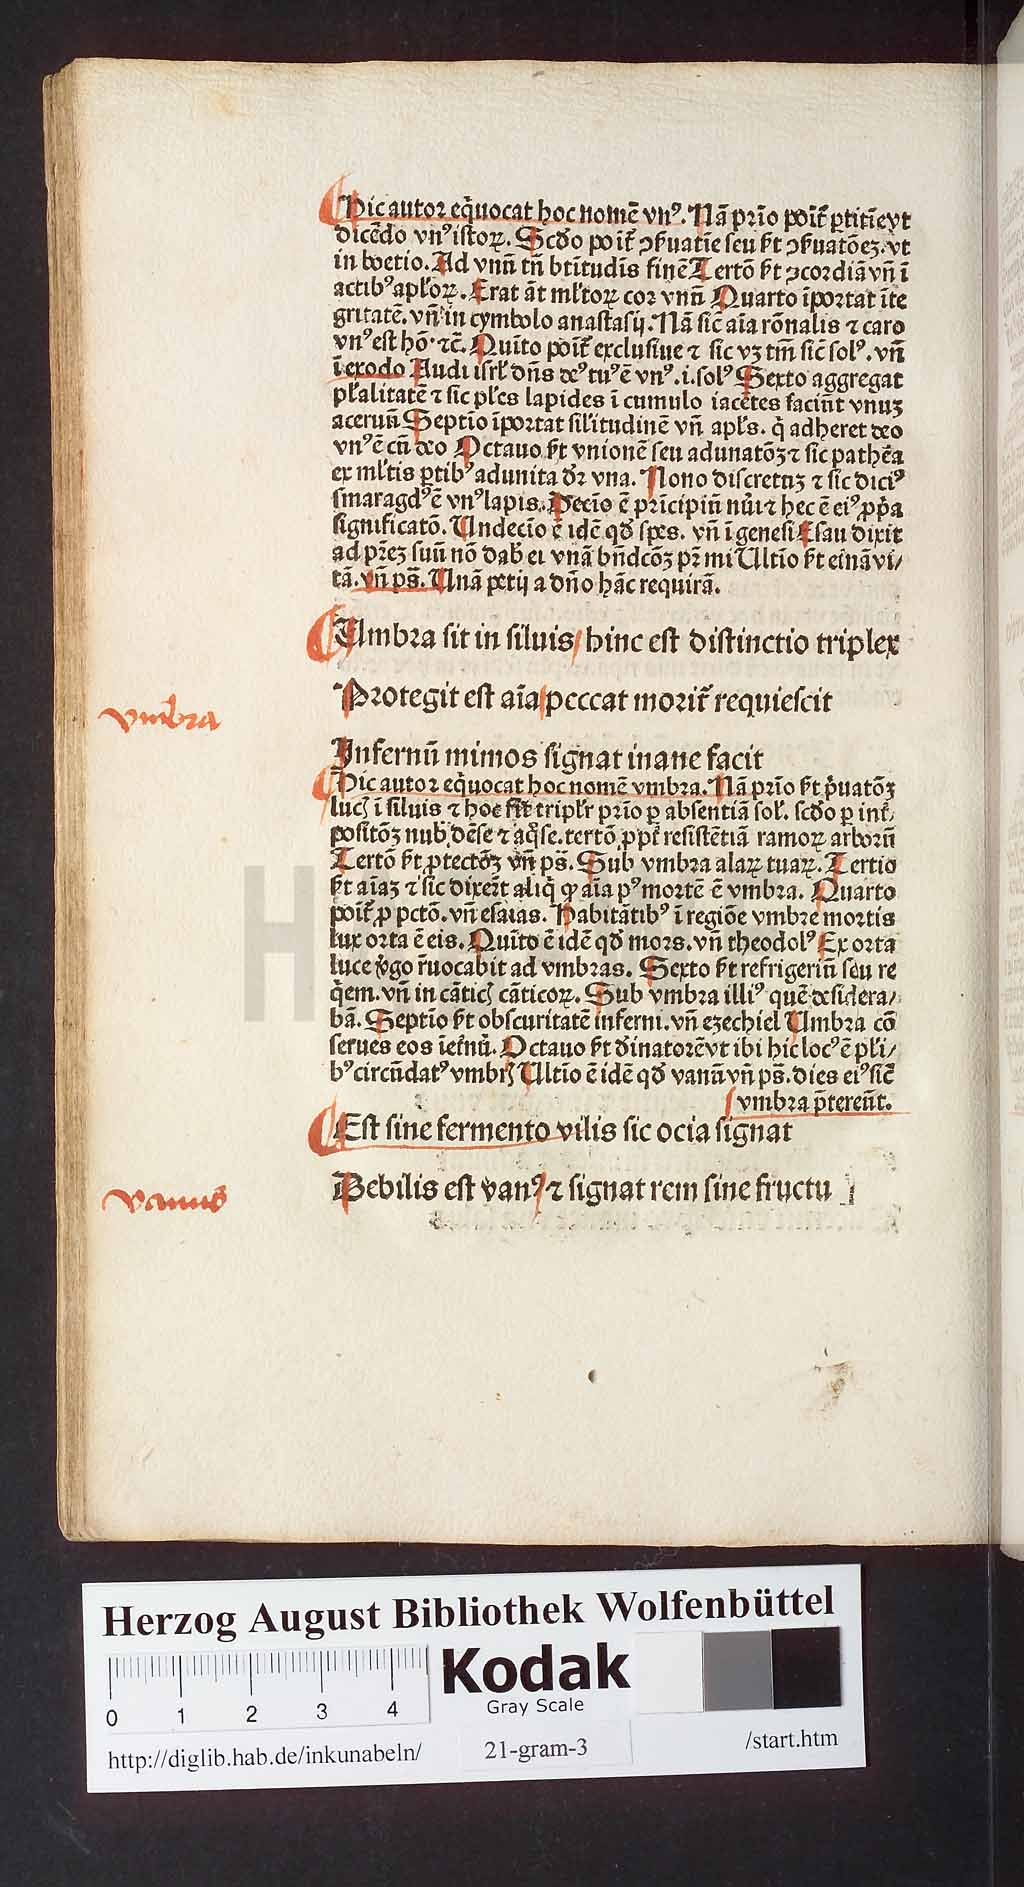 Hic autor eq̄uocat hoc nomē vnꝰ. Nā prīo poīt᷒ ꝑtitīe vt
dicēdo vnꝰ istoꝝ. Scd̄o poīt᷒ ꝯẜuatīe seu ẜt ꝯẜuatōeꝫ. vt
in boetio. Ad vnū tn̄ btītudīs finē Tertō ẜt ꝯcordiā vn̄ ī
actibꝰ apl'oꝝ. Erat āt ml'toꝝ cor vnū Quarto īportat īte
gritatē. vn̄ in cymbolo anastasij. Nā sic̄ aīa rōnalis ⁊ caro
vnꝰ est hō. ⁊c̄. Quīto poīt᷒ exclusiue ⁊ sic vꝫ tm̄ sic̄ solꝰ. vn̄
ī exodo Audi isrl' dn̄s deꝰ tuꝰ ē vnꝰ. i. solꝰ Sexto aggregat
pl'alitatē ⁊ sic pl'es lapides ī cumulo iacētes faciūt vnuꝫ
aceruū Septīo īportat sil'itudinē vn̄ apl's. q̄ adheret deo
vnꝰ ē cū deo Octauo ẜt vnionē seu adunatōꝫ ⁊ sic pathēa
ex ml'tis ꝑtibꝰ adunita dr̄ vna. Nono discretuꝫ ⁊ sic diciꝰ
smaragdꝰ ē vnꝰ lapis. Decīo ē prīcipiū nūi ⁊ hec ē eiꝰ ꝓpa
significatō. Undecīo ē idē qd̄ spēs. vn̄ ī genesi Esau dixit
ad prēꝫ suū nō dab̄ ei vnā bn̄dcōꝫ pr̄ mi Ultīo ẜt eīnā vi/
tā. vn̄ ps̄. Unā petij a dn̄o hāc requirā.
Umbra sit in siluis/ hinc est distinctio triplex
Protegit est aīa/ peccat morit᷒ requiescit
vmbra
Infernū mimos signat inane facit
Hic autor eq̄uocat hoc nomē vmbra. Nā prīo ẜt p̄uatōꝫ
luc̨ ī siluis ⁊ hoc tripl'r prīo ꝑ absentiā sol'. scd̄o ꝑ int᷒/
positōꝫ nub̨ dēse ⁊ aq̄se. tertō ꝓpt᷒ resistētiā ramoꝝ arborū
Tertō ẜt ꝓtectōꝫ vn̄ ps̄. Sub vmbra alaꝝ tuaꝝ. Tertio
ẜt aīaꝫ ⁊ sic dixer̄t aliq̄ ꝙ aīa pꝰ mortē ē vmbra. Quarto
poīt᷒ ꝓ pctō. vn̄ esaias. Habitātibꝰ ī regiōe vmbre mortis
lux orta ē eis. Quīto ē idē qd̄ mors. vn̄ theodolꝰ Ex orta
luce v̄go r̄uocabit ad vmbras. Sexto ẜt refrigeriū seu re
q̄em. vn̄ in cātic̨ cāticoꝝ. Sub vmbra illiꝰ quē desidera/
bā. Septīo ẜt obscuritatē inferni. vn̄ ezechiel Umbra cō
serues eos īefnū. Octauo ẜt d̄inatorē vt ibi hic locꝰ ē pl'i/
bꝰ circūdatꝰ vmbr̨ Ultīo ē idē qd̄ vanū vn̄ ps̄. dies eiꝰ sic̄
vmbra p̄tereūt.
Est sine fermento vilis sic ocia signat
vanus
Debilis est vanꝰ/ ⁊ signat rem sine fructu
Herzog August Bibliothek Wolfenbüttel
Kodak
Gray Scale
0 1 2 3 4
http://diglib.hab.de/inkunabeln/
21-gram-3
/start.htm